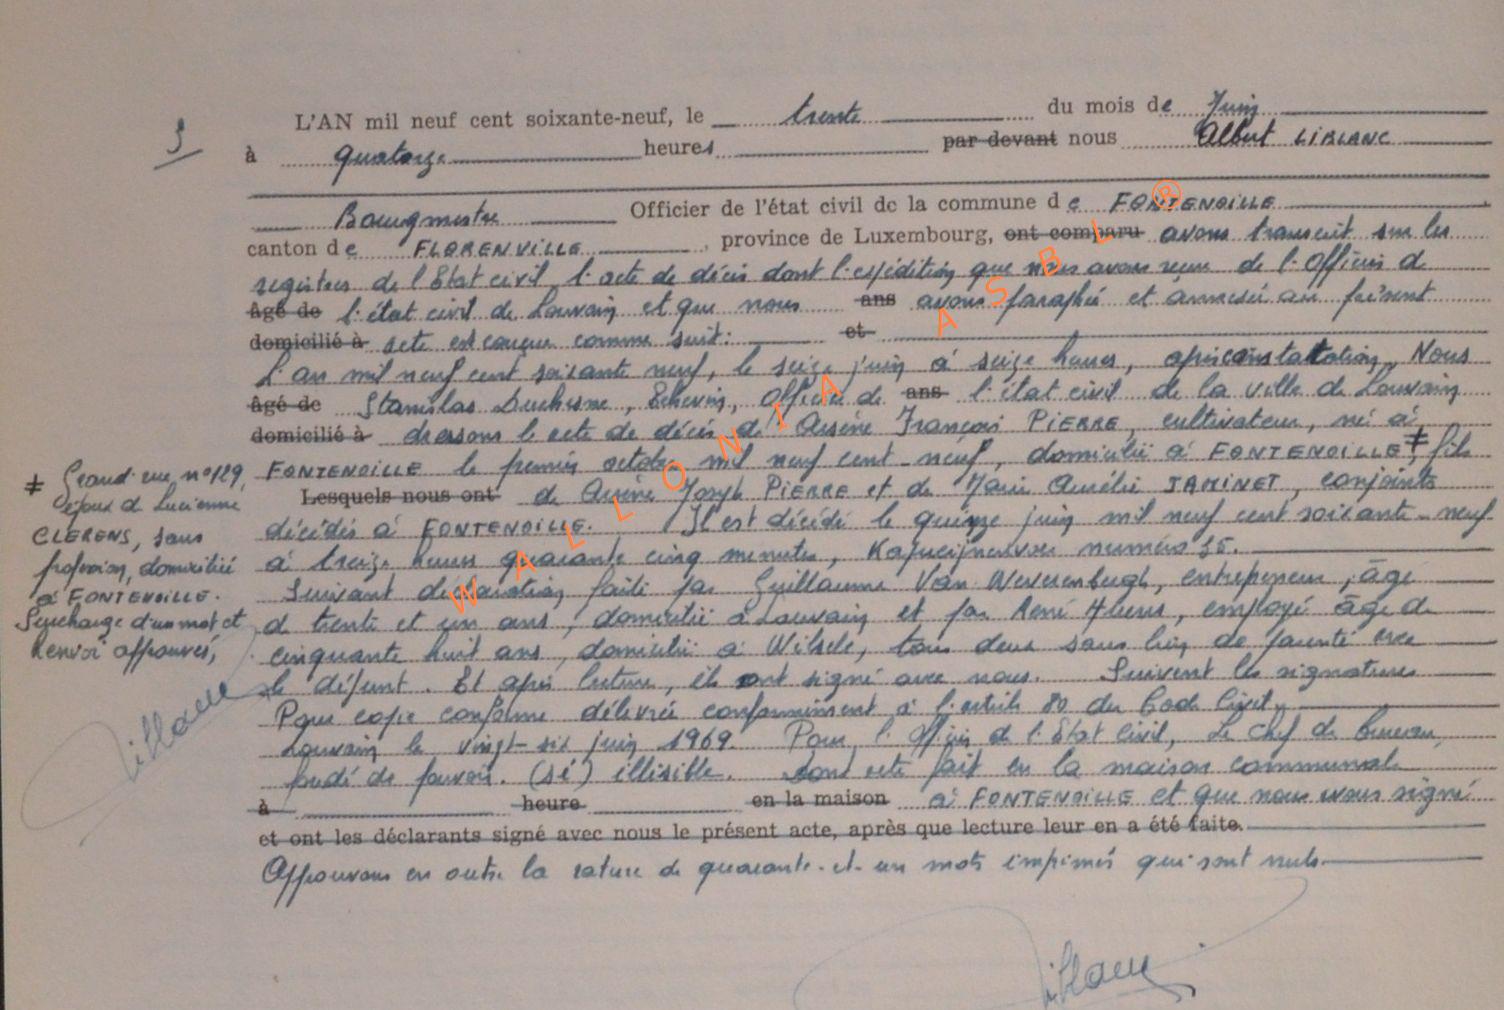 3
L'AN mil neuf cent soixante-neuf, le trente du mois de Juin
à quatorze heures par devant nous Albert LEBLANC
Bourgmestre Officier de l'état civil de la commune de FONTENOILLE
canton de FLORENVILLE, province de Luxembourg, ont comparu avons transcrit sur les
registres de l'Etat civil l'acte de décès dont l'expédition que nous avons reçue de l'Officier de
âgé de l'état civil de Louvain et que nous ans avons paraphé et annexée au présent
domicilié à acte est conçue comme suit: et
L'an mil neuf cent soixante neuf, le seize juin à seize heures, après constatation, Nous
âgé de Stanislas Duchesne, Echevin, Officier de ans l'état civil de la ville de Louvain
domicilié à dressons le acte de décès de Arsène François PIERRE, cultivateur, né à
FONTENOILLE le premier octobre mil neuf cent-neuf, domicilié à FONTENOILLE ≠ fils
Lesquels nous ont de Arsène Joseph PIERRE et de Marie Aurélie JAMINET, conjoints
décédés à FONTENOILLE. Il est décédé le quinze juin mil neuf cent soixante-neuf
à treize heures quarante cinq minutes, Kapucijnenvoer numéro 35.
Suivant déclaration faite par Guillaume Van Weverenbergh, entrepreneur, âgé
de trente et un ans, domicilié à Louvain et par René, employé âgé de
cinquante huit ans, domicilié à Wilsele, tous deux sans lien de parenté avec
le défunt. Et après lecture, ils ont signé avec nous. Suivent les signatures
Pour copie conforme délivrée conformément à l'article 80 du Code Civil,
Louvain le vingt-six juin 1969. Pour l'Officier de l'Etat Civil, Le Chef de bureau,
fondé de pouvoir. (sé) illisible. Dont acte fait en la maison communale
à heure en la maison à FONTENOILLE et que nous avons signé
et ont les déclarants signé avec nous le présent acte, après que lecture leur en a été faite.
Approuvons en outre la rature de quarante-et-un mots imprimés qui sont nuls
≠ Grand'rue n°129,
époux de Lucienne
CLERENS, sans
profession, domiciliée
à FONTENOILLE.
Surcharge d'un mot et
renvoi approuvés,
WALLONIA ASBL ®